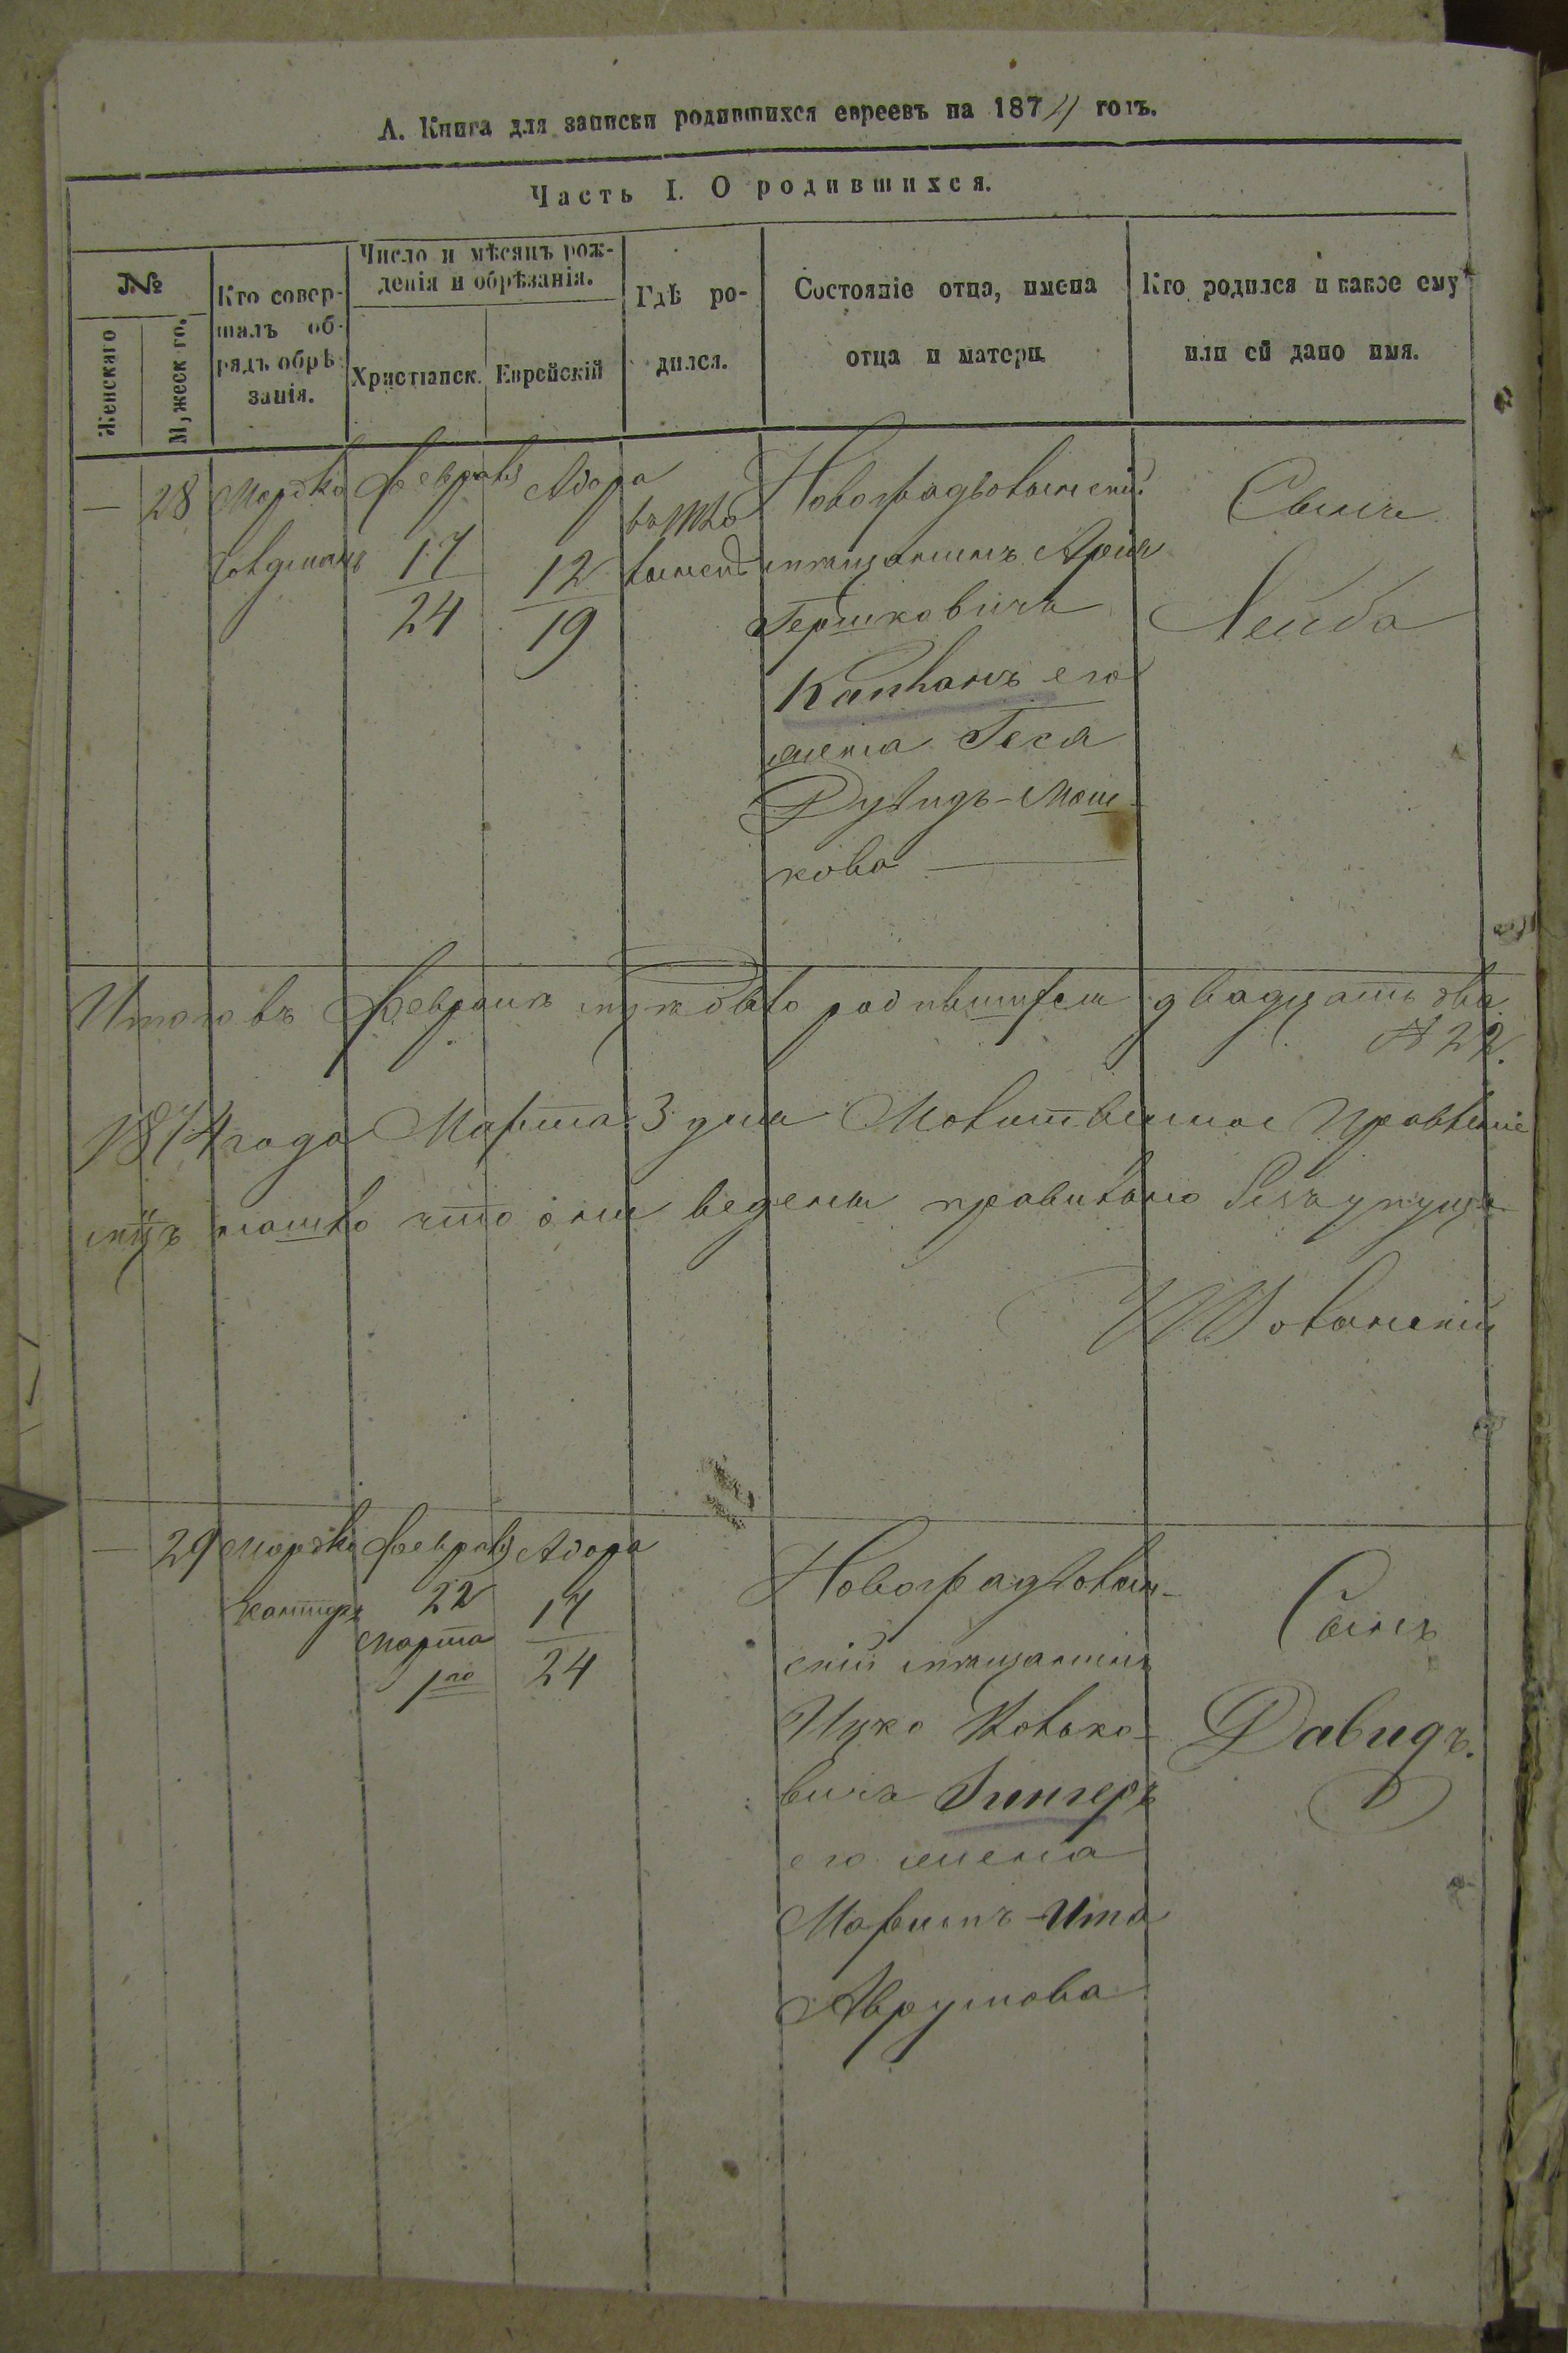 А. Книга для записки родившихся евреевъ на 1874 годъ.
Часть I. О родившихся.
№
Женскаго
Мужескаго.
Кто совер-
шалъ об-
рядъ обрѣ-
занія.
Число и мѣсяцъ рож-
денія и обрѣзанія.
Христіанск.
Еврейскій
Гдѣ ро-
дился.
Состояніе отца, имена
отца и матери.
Кто родился и какое ему
или ей дано имя.
— 28
Мордко
февраля
17
24
Адара
12
19
Новоградволынскій
мѣщанинъ
Гершковичъ
Капланъ его
жена Геся
Дувидъ-Мош-
кова
Сынъ
Лейба
Итого въ февралѣ родившихся двадцать два
22.
1874 года Марта 3 дня Молитвенное Правленіе
нашло что они ведены правильно
— 29
Мордко
Кантуръ
февраля
22
Марта
1го
Адара
17
24
Новоградволын-
скій мѣщанинъ
Ицко
вичъ Зингеръ
его жена
Ита
Аврумова
Сынъ
Давидъ.